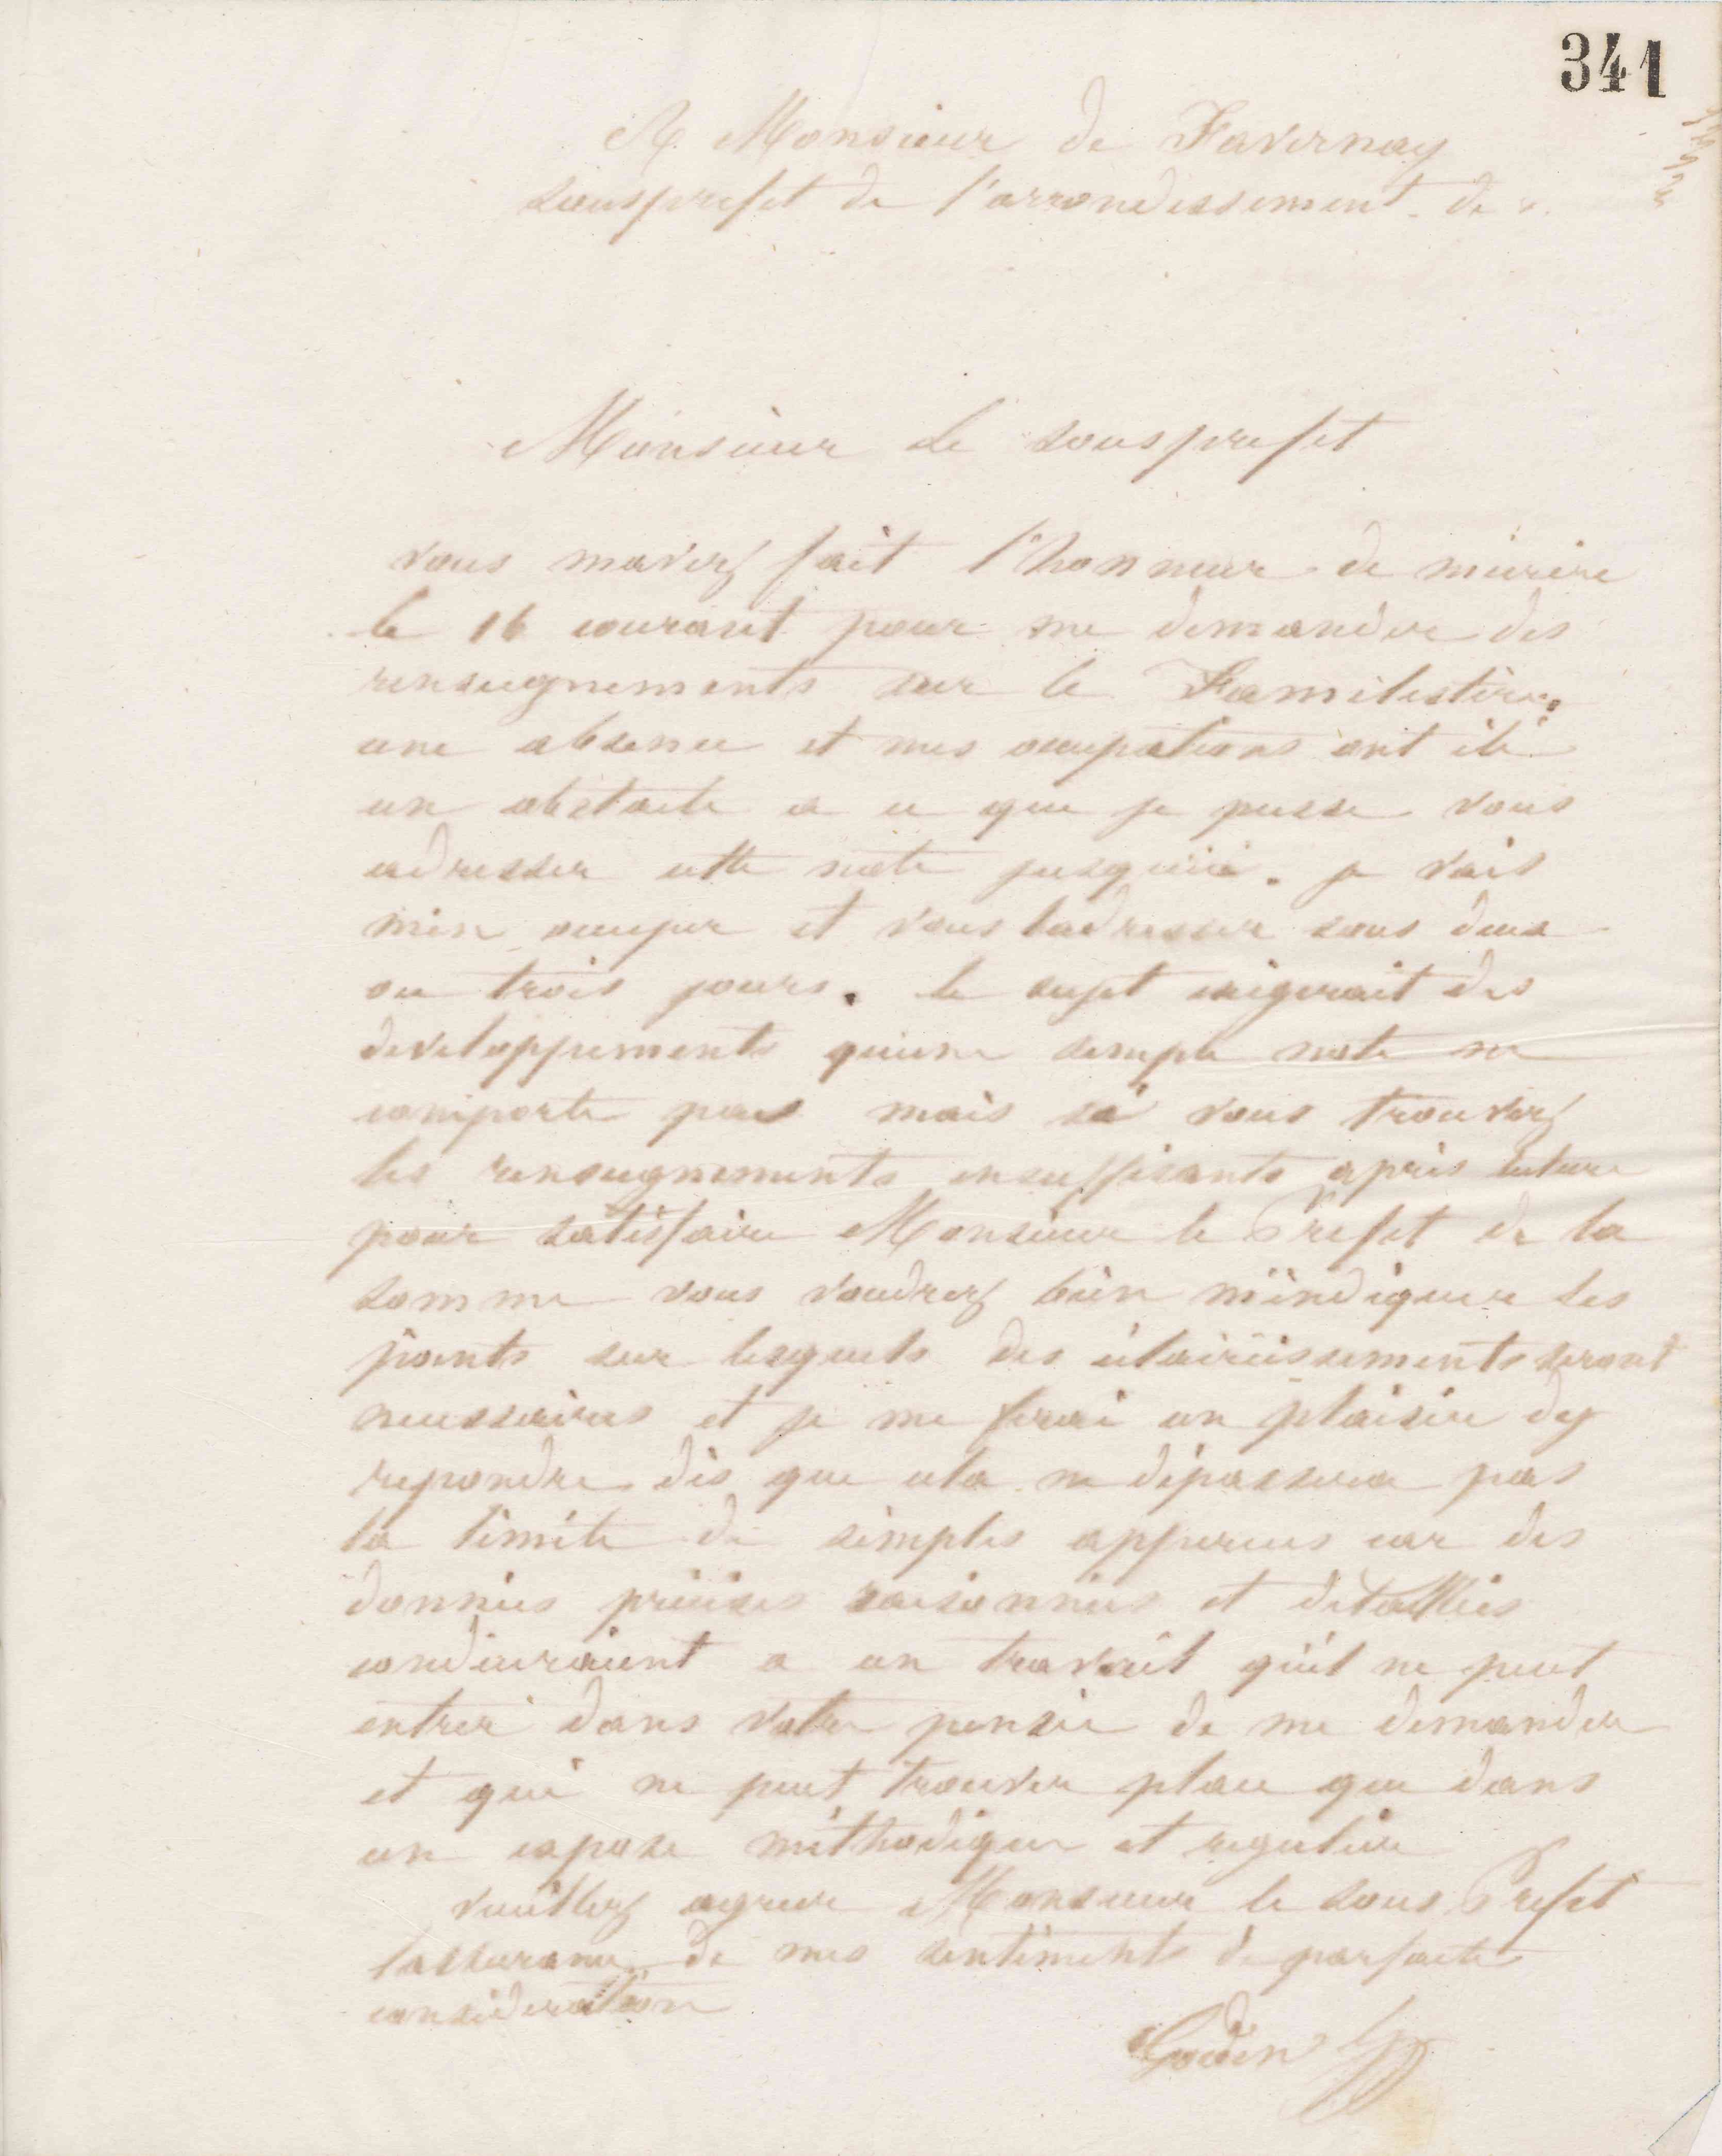 341
A Monsieur de Favernay
sousprefet de l'arrondissement de
Monsieur le sousprefet
vous mavez fait l'honneur de m'ecrire
le 16 courant pour me demander des
renseignements sur le Familistère.
une absence et mes occupations ont été
un obstacle a ce que je pusse vous
adresser cette note jusqu'ici. je vais
men occuper et vous ladresser sous deux
ou trois jours. le sujet exigerait des
developpements qu'une simple note ne
comporte pas mais si vous trouvez
les renseignements insuffisants après lecture
pour satisfaire Monsieur le Prefet de la
somme vous voudrez bien m'indiquer les
points sur lesquels des éclaircissements seront
necessaires et je me ferai un plaisir dy
repondre dès que cela ne dépassera pas
la limite de simples apperçus car des
données précises raisonnées et detaillées
conduiraient a un travail qu'il ne peut
entrer dans votre pensée de me demander
et qui ne peut trouver place que dans
un expose méthodique et regulier
veuillez agreer Monsieur le sous Prefet
lassurance de mes sentiments de parfaite
consideration
Godin